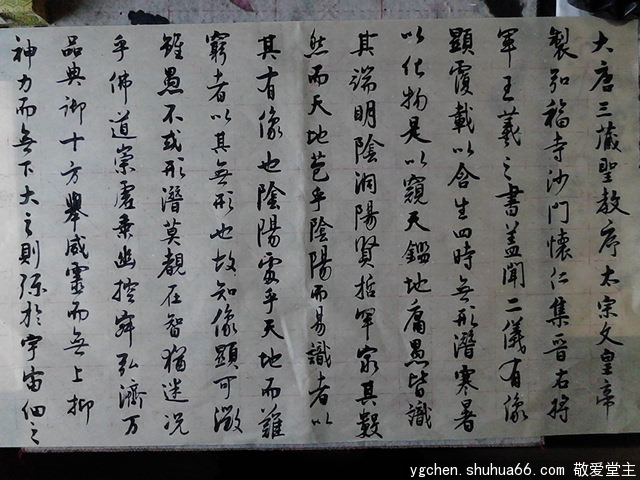 大唐三藏聖教序太宗文皇帝
製弘福寺沙門懷仁集晉右將
軍王羲之書蓋聞二儀有像
顯覆載以含生四時無形潛寒暑
以化物是以窺天鑑地庸愚皆識
其端明陰洞陽賢哲罕窮其數
然而天地苞乎陰陽而易識者以
其有像也陰陽處乎天地而難
窮者以其無形也故知像顯可徵
雖愚不惑形潛莫覩在智猶迷況
乎佛道崇虛乘幽控寂弘濟万
品典御十方舉威靈而無上抑
神力而無下大之則弥於宇宙細之
ygchen.shuhua66.com 敬爱堂主